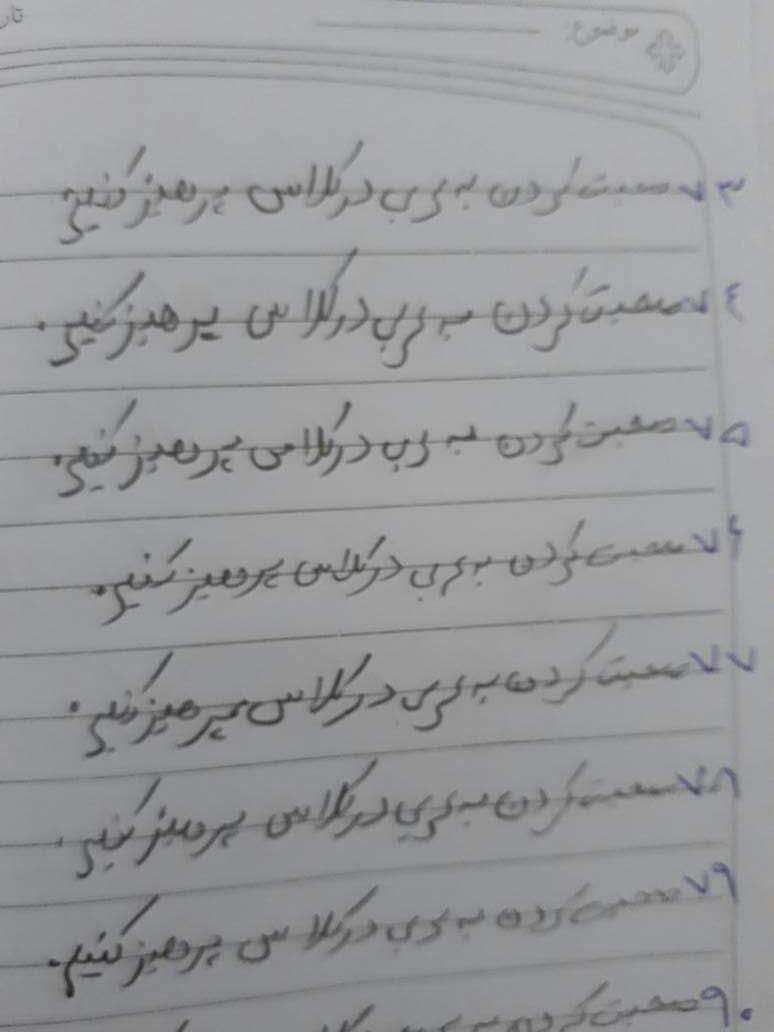 موضوع: تار
۷۳ صحبت کردن به عربی در کلاس پرهیز کنیم
۷۴ صحبت کردن به عربی در کلاس پرهیز کنیم.
۷۵ صحبت کردن به عربی در کلاس پرهیز کنیم.
۷۶ صحبت کردن به عربی در کلاس پرهیز کنیم.
۷۷ صحبت کردن به عربی در کلاس پرهیز کنیم.
۷۸ صحبت کردن به عربی در کلاس پرهیز کنیم.
۷۹ صحبت کردن به عربی در کلاس پرهیز کنیم.
۹۰ صحبت کردن به